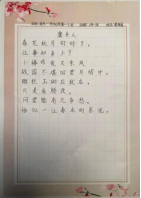 虞美人
春花秋月何时了,
往事知多少?
小楼昨夜又东风,
故国不堪回首月明中。
雕栏玉砌应犹在,
只是朱颜改。
问君能有几多愁,
恰似一江春水向东流。